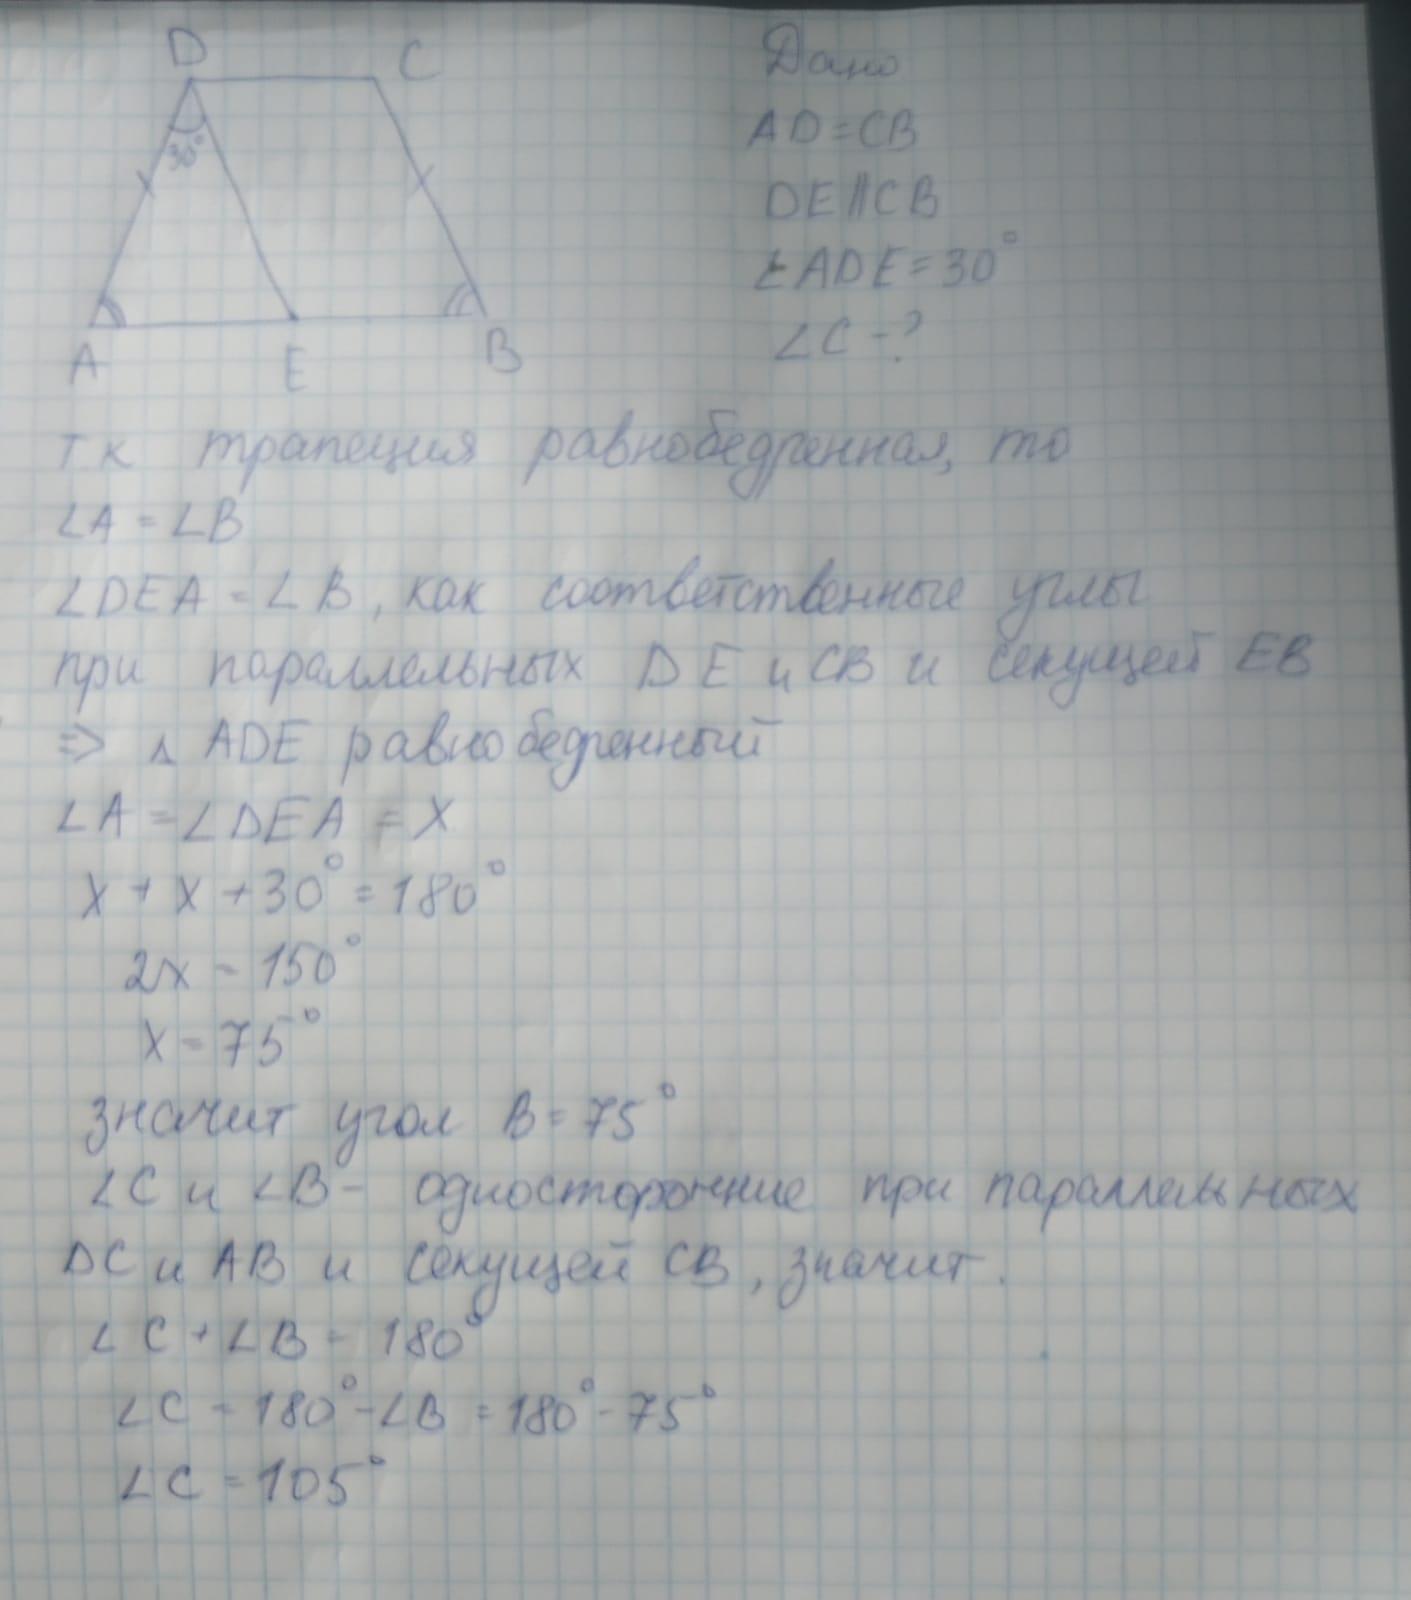 D C
30°
A E B
Дано
AD=CB
DE||CB
∠ADE=30°
∠C-?
тк трапеция равнобедренная, то
∠A=∠B
∠DEA=∠B, как соответственные углы
при параллельных DE и CB и секущей EB
=> △ ADE равнобедренный
∠A=∠DEA=x
x+x+30°=180°
2x=150°
x=75°
значит угол B=75°
∠C и ∠B- односторонние при параллельных
DC и AB и секущей CB, значит.
∠C+∠B=180°
∠C=180°-∠B=180°-75°
∠C=105°